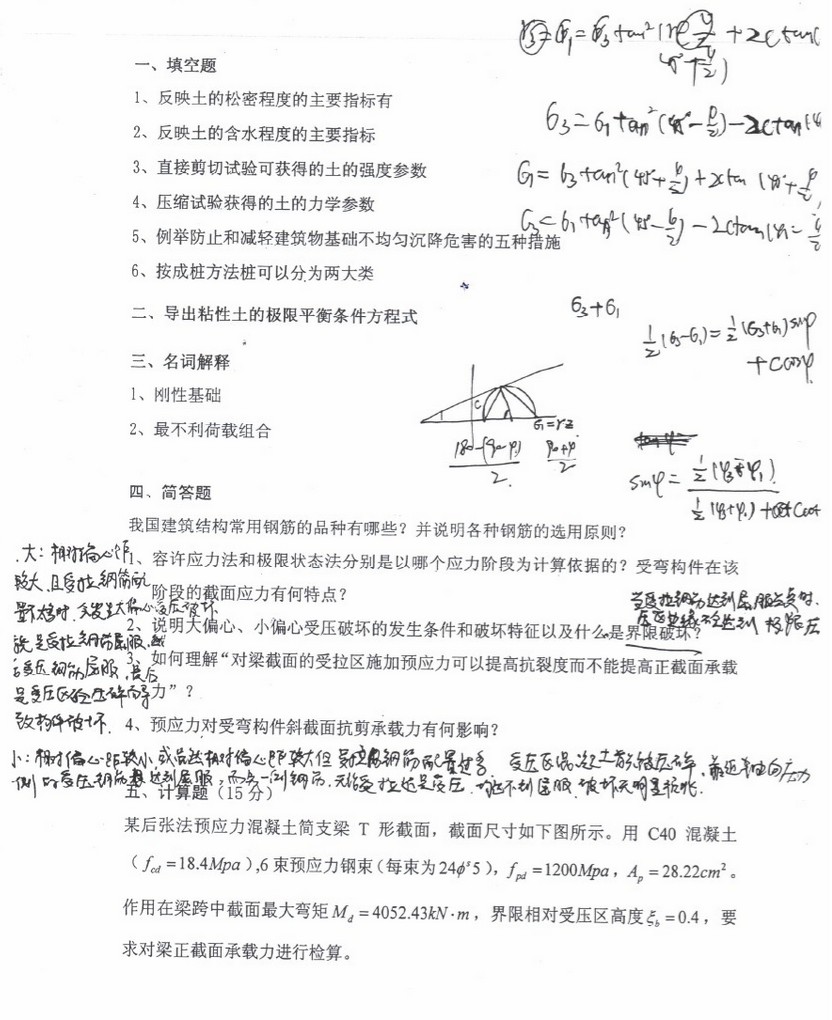 σ₁=σ₃tan²(45°+φ/2)+2c tan(
σ₃=σ₁tan²(45°-φ/2)-2ctan(4
σ₁=σ₃tan²(45°+φ/2)+2ctan(45°+φ/2
σ₃=σ₁tan²(45°-φ/2)-2ctan(45-φ/2
一、填空题
1、反映土的松密程度的主要指标有
2、反映土的含水程度的主要指标
3、直接剪切试验可获得的土的强度参数
4、压缩试验获得的土的力学参数
5、例举防止和减轻建筑物基础不均匀沉降危害的五种措施
6、按成桩方法桩可以分为两大类
二、导出粘性土的极限平衡条件方程式
σ₃+σ₁
½(σ₃-σ₁)=½(σ₃+σ₁)sinφ
+Ccosφ.
三、名词解释
1、刚性基础
2、最不利荷载组合
c
σ₁=γz
180-(90-φ)/2.
90+φ/2
sinφ=
四、简答题
我国建筑结构常用钢筋的品种有哪些？并说明各种钢筋的选用原则？
1、容许应力法和极限状态法分别是以哪个应力阶段为计算依据的？受弯构件在该
阶段的截面应力有何特点？
2、说明大偏心、小偏心受压破坏的发生条件和破坏特征以及什么是界限破坏？
3、如何理解“对梁截面的受拉区施加预应力可以提高抗裂度而不能提高正截面承载
力”？
4、预应力对受弯构件斜截面抗剪承载力有何影响？
大：相对偏心距
较大，且受拉钢筋配
量不太多时，会发生大偏心受压破坏
是受拉钢筋屈服，然
后受压钢筋屈服，最后
是受压区砼压碎而导
致构件破坏.
当受拉钢筋达到屈服应变时，
极限压
小：相对偏心距较小，或虽然相对偏心距较大但受拉钢筋配置过多 受压区混凝土被压碎，靠近轴向压力
侧的受压钢筋达到屈服，而另一侧钢筋，无论受拉还是受压，均达不到屈服.破坏无明显预兆.
五、计算题（15 分）
某后张法预应力混凝土简支梁 T 形截面，截面尺寸如下图所示。用 C40 混凝土
（f_cd=18.4Mpa）,6 束预应力钢束（每束为24φˢ5），f_pd=1200Mpa，A_p=28.22cm²。
作用在梁跨中截面最大弯矩M_d=4052.43kN·m，界限相对受压区高度ξ_b=0.4，要
求对梁正截面承载力进行检算。